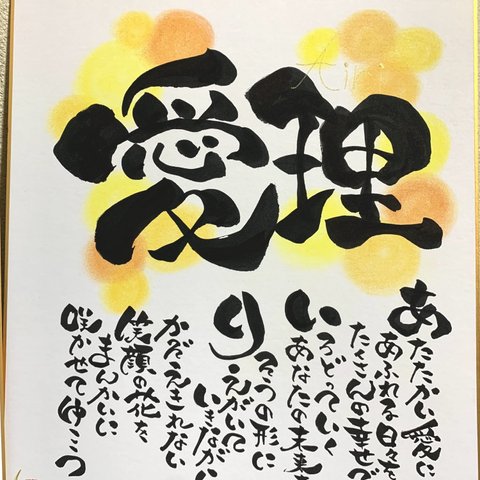 愛理
Airi
あたたかい愛に
あふれる日々を
たくさんの幸せで
いろどっていく
あなたの未来を
りそうの形に
えがいて
いきながら
かぞえきれない
笑顔の花を
まんかいに
咲かせてゆこう